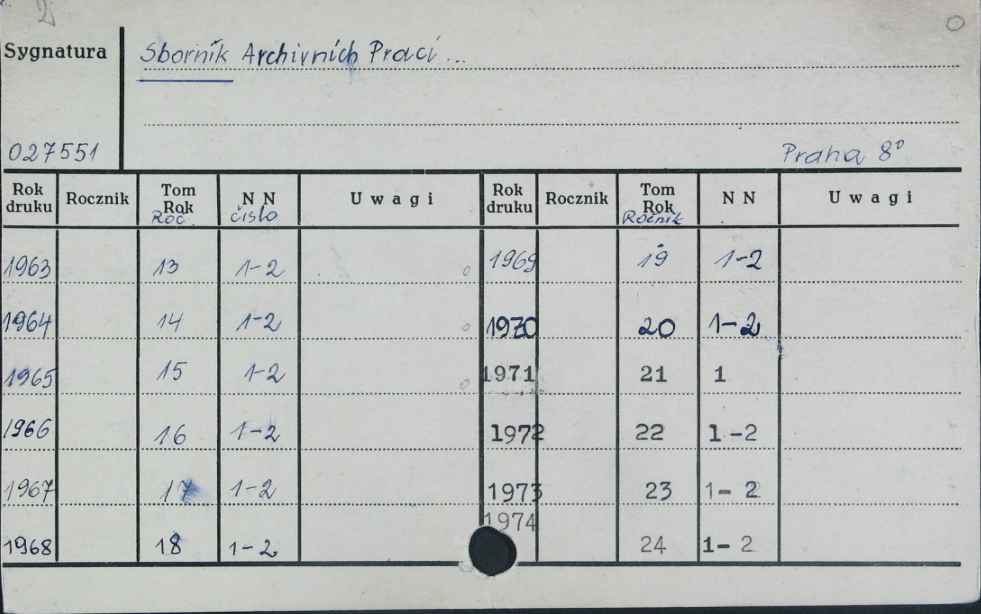 2
Sygnatura Sborník Archivních Prací...
027551 Praha 8°
Rok druku Rocznik Tom Rok Roč. N N číslo Uwagi Rok druku Rocznik Tom Rok Ročnik N N Uwagi
1963 13 1-2 1969 19 1-2
1964 14 1-2 1970 20 1-2
1965 15 1-2 1971 21 1
1966 16 1-2 1972 22 1-2
1967 17 1-2 1973 23 1-2
1968 18 1-2 1974 24 1-2